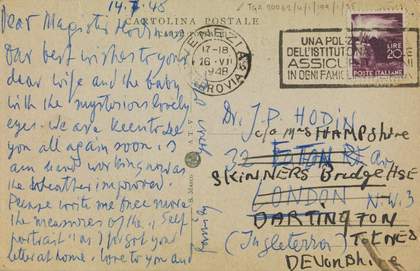 14.7.48
Dear Magister Hodin
Our best wishes to your
dear wife and the baby
with the mysterious lovely
eyes. We are keen to see
you all again soon. I
am hard working now as
the weather improved.
Please write me free
the measures of the "Self
portrait" as I forgot your
letter at home. Love to you and
CARTOLINA POSTALE
VENEZIA
17-18
16 VII
1948
FERROVIA
UNA POLIZZA
DELL'ISTITUTO
ASSICURA
IN OGNI FAMIGLIA
LIRE
20
POSTE ITALIANE
Dr. J.P. HODIN
c/o Mrs HAMPSHIRE
32 ETON Av
SKINNERS Bridge HSE
LONDON N.W.3
DARTINGTON
(Inghilterra) TOTNES
DEVONShire